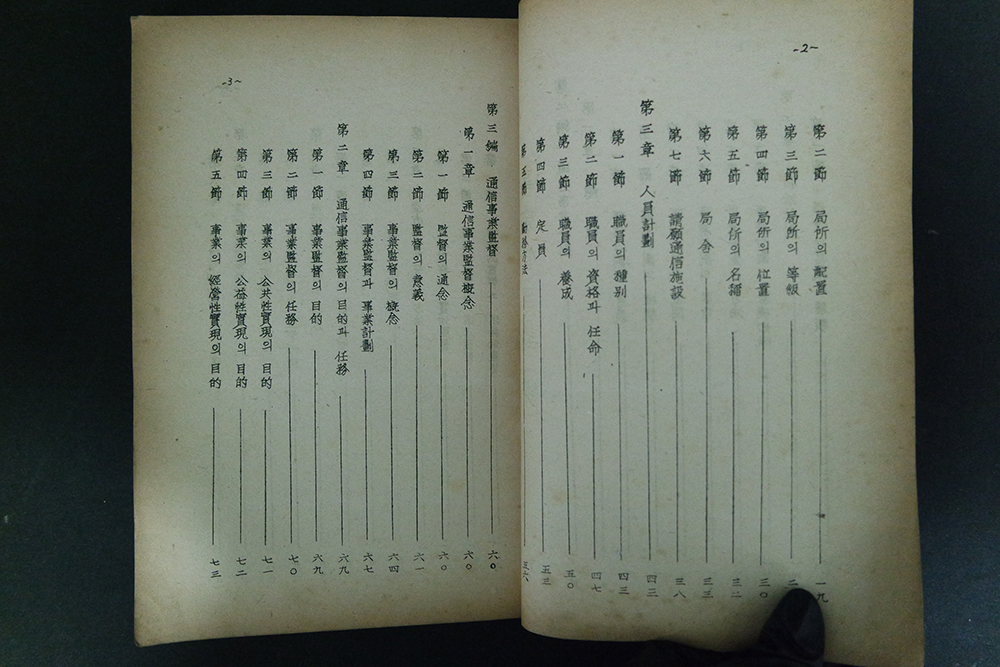 -2-
第二節 局所의 配置 一九
第三節 局所의 等級 二
第四節 局所의 位置 三〇
第五節 局所의 名稱 三二
第六節 局舍 三三
第七節 請願通信施設 三八
第三章 人員計劃 四三
第一節 職員의 種別 四三
第二節 職員의 資格과 任命 四七
第三節 職員의 養成 五〇
第四節 定員 五三
第五節 五六
-3-
第三編 通信事業監督 六〇
第一章 通信事業監督槪念 六〇
第一節 監督의 通念 六〇
第二節 監督의 意義 六一
第三節 事業監督의 槪念 六四
第四節 事業監督과 事業計劃 六七
第二章 通信事業監督의 目的과 任務 六九
第一節 事業監督의 目的 六九
第二節 事業監督의 任務 七〇
第三節 事業의 公共性實現의 目的 七一
第四節 事業의 公益性實現의 目的 七二
第五節 事業의 經營性實現의 目的 七三